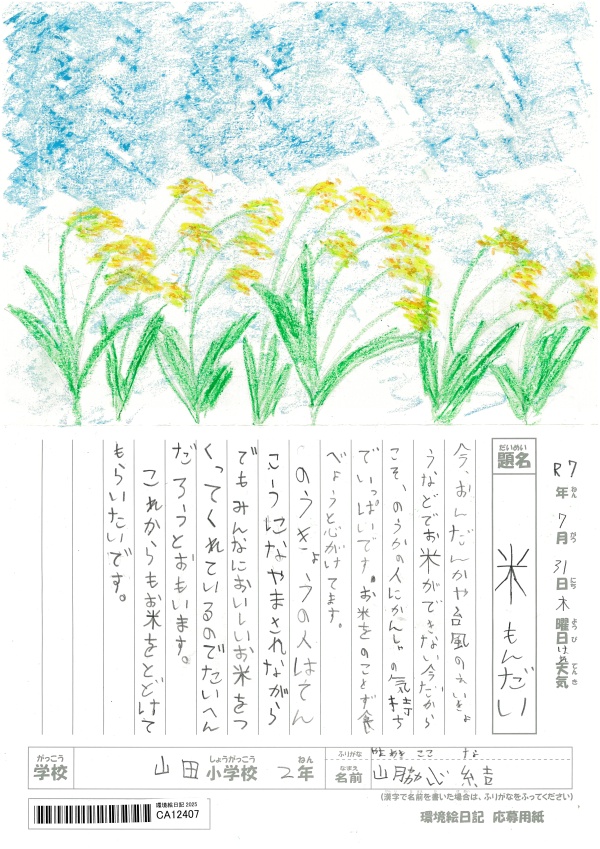 R7年 7月 31日 木曜日 天気
題名 米もんだい
今、おんだんかや台風のえいきょ
うなどでお米ができない今だから
こそ、のうかの人にかんしゃの気持ち
でいっぱいです。お米をのことず食
べようと心がけてます。
のうきょうの人はてん
こうになやまされながら
でもみんなにおいしいお米をつ
くってくれているのでたいへん
だろうとおもいます。
これからもお米をとどけて
もらいたいです。
がっこう しょうがっこう ねん ふりがな ここ な
学校 山田小学校 2年 なまえ 名前 山脇心結
(漢字で名前を書いた場合は、ふりがなをふってください)
環境絵日記 2025
CA12407
環境絵日記 応募用紙